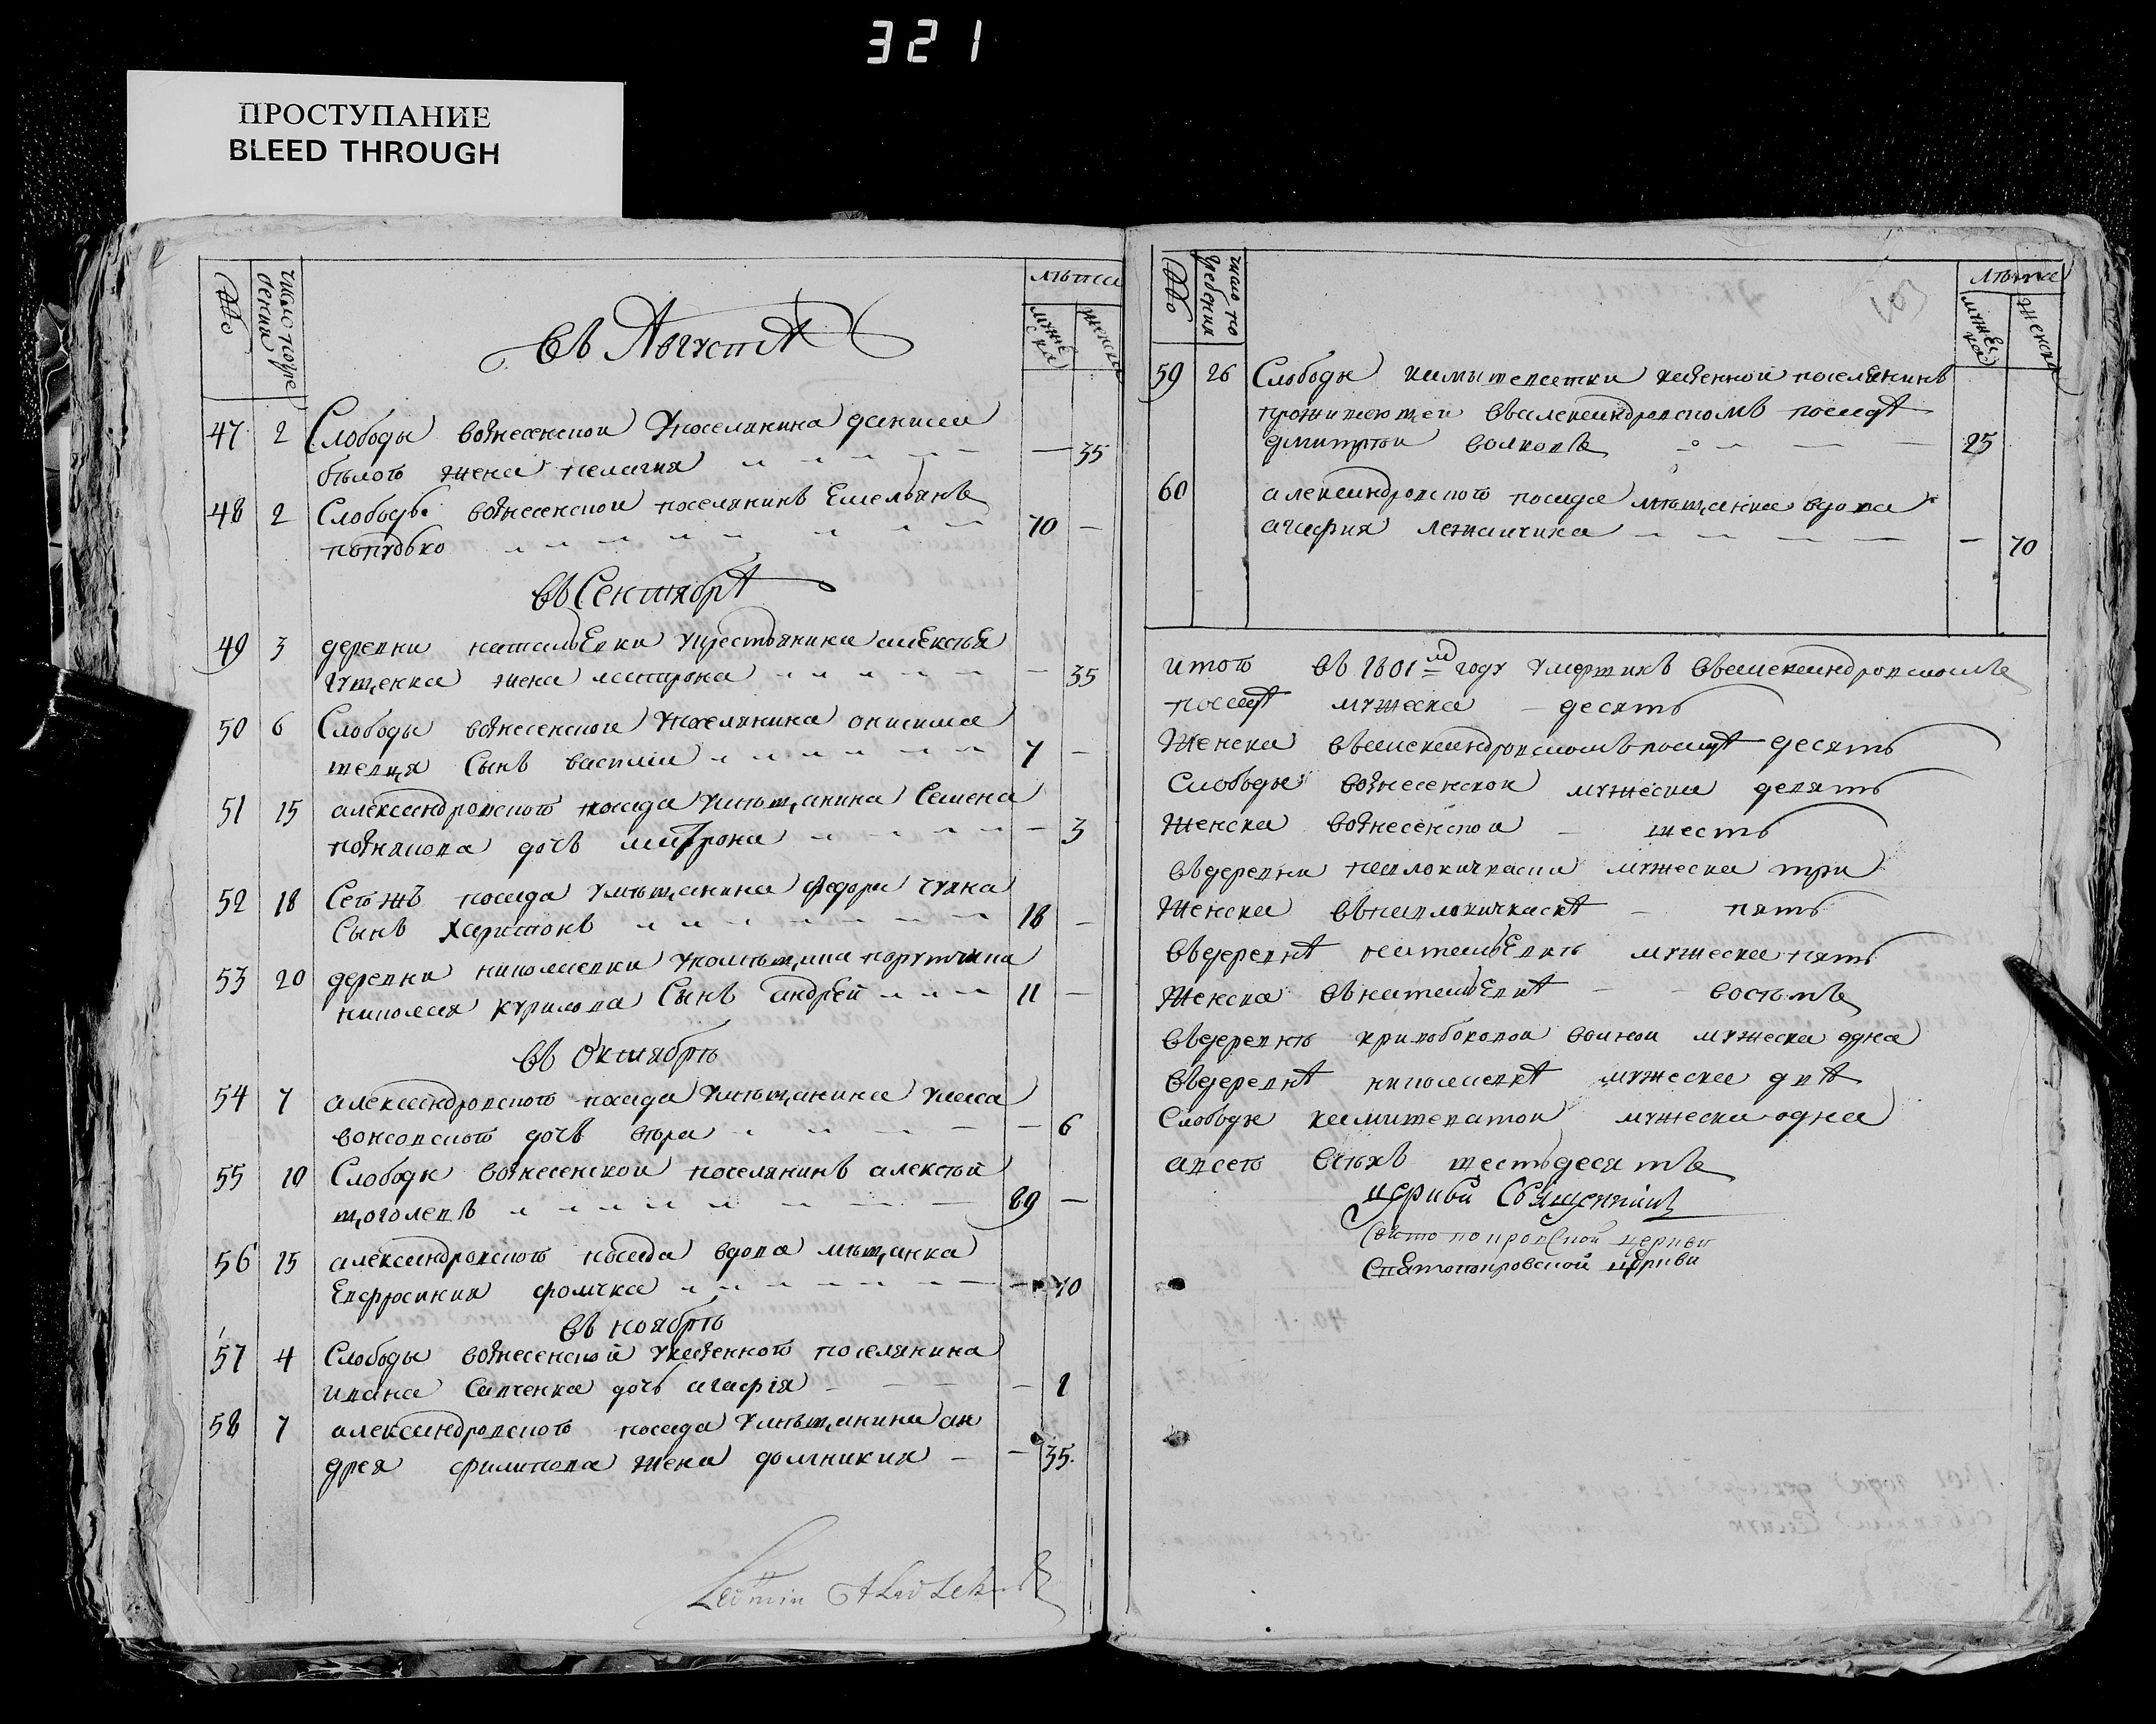 321
ПРОСТУПАНИЕ
BLEED THROUGH
№
число погре
бения
лѣта
мужес
ка
женска
въ Августѣ
47 2 Слободы вознесенской Упоселянина данила
бѣлого жена пелагия — 35
48 2 Слободы вознесенской поселянинъ Емельянъ
70 —
въ Сентябрѣ
49 3 деревни натальЕвки Укрестьянина алексѣя
гущенка жена матрона — 35
50 6 Слободы вознесенской Упоселянина онисима
Сынъ василий 7 —
51 15 александровского посада Умѣщанина Семена
познякова дочь матрона — 3
52 18 Сегожъ посада Умѣщанина федора чуяна
Сынъ Харитонъ 18 —
53 20 деревни николаевки Упомѣщика порутчика
николая курилова Сынъ андрей 11 —
въ Октябрѣ
54 7 александровского посада Умѣщанина
дочь — 6
55 10 Слободы вознесенской поселянинъ алексѣй
щоголевъ 89 —
56 15 александровского посада вдова мѣщанка
Евфросиния фомичка — 70
въ ноябрѣ
57 4 Слободы вознесенской Указенного поселянина
ивана Савченка дочь агафія — 1
58 7 александровского посада Умѣщанина ан
дрея филипова жена домникия — 35
№
число по
гребения
лѣта
мужес
ка
женска
103
59 26 Слободы камышеватки казенной поселянинъ
проживающей въалександровскомъ посадѣ
дмитрей волковъ 25
60 александровского посада мѣщанка вдова
агафия — 70
итого въ 1801м году Умертихъ въалександровскомъ
посадѣ мужеска — десять
Женска въалександровскомъ посадѣ десять
Слободы вознесенской мужеска девять
женска вознесенской — шесть
въдеревни мужеска три
Женска — пять
въдеревнѣ натальЕвкѣ мужеска пять
Женска въ натальЕвкѣ — восемъ
въдеревнѣ мужеска одна
въдеревнѣ николаевкѣ мужеска двѣ
Слободы камишеватой мужеска одна
авсего всѣхъ шестьдесятъ
церкви Священникъ
Свято покровской церкви
Святопокровской церкви